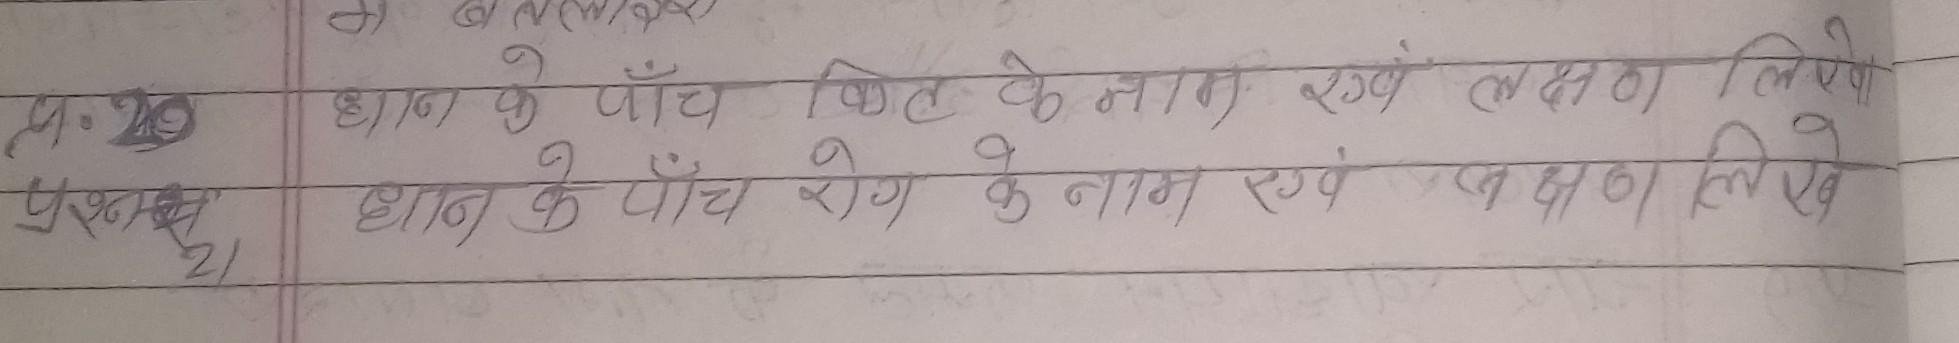 प्र. 20 धान के पाँच किट के नाम एवं लक्षण लिखे
प्रश्न 21 धान के पाँच रोग के नाम एवं लक्षण लिखे